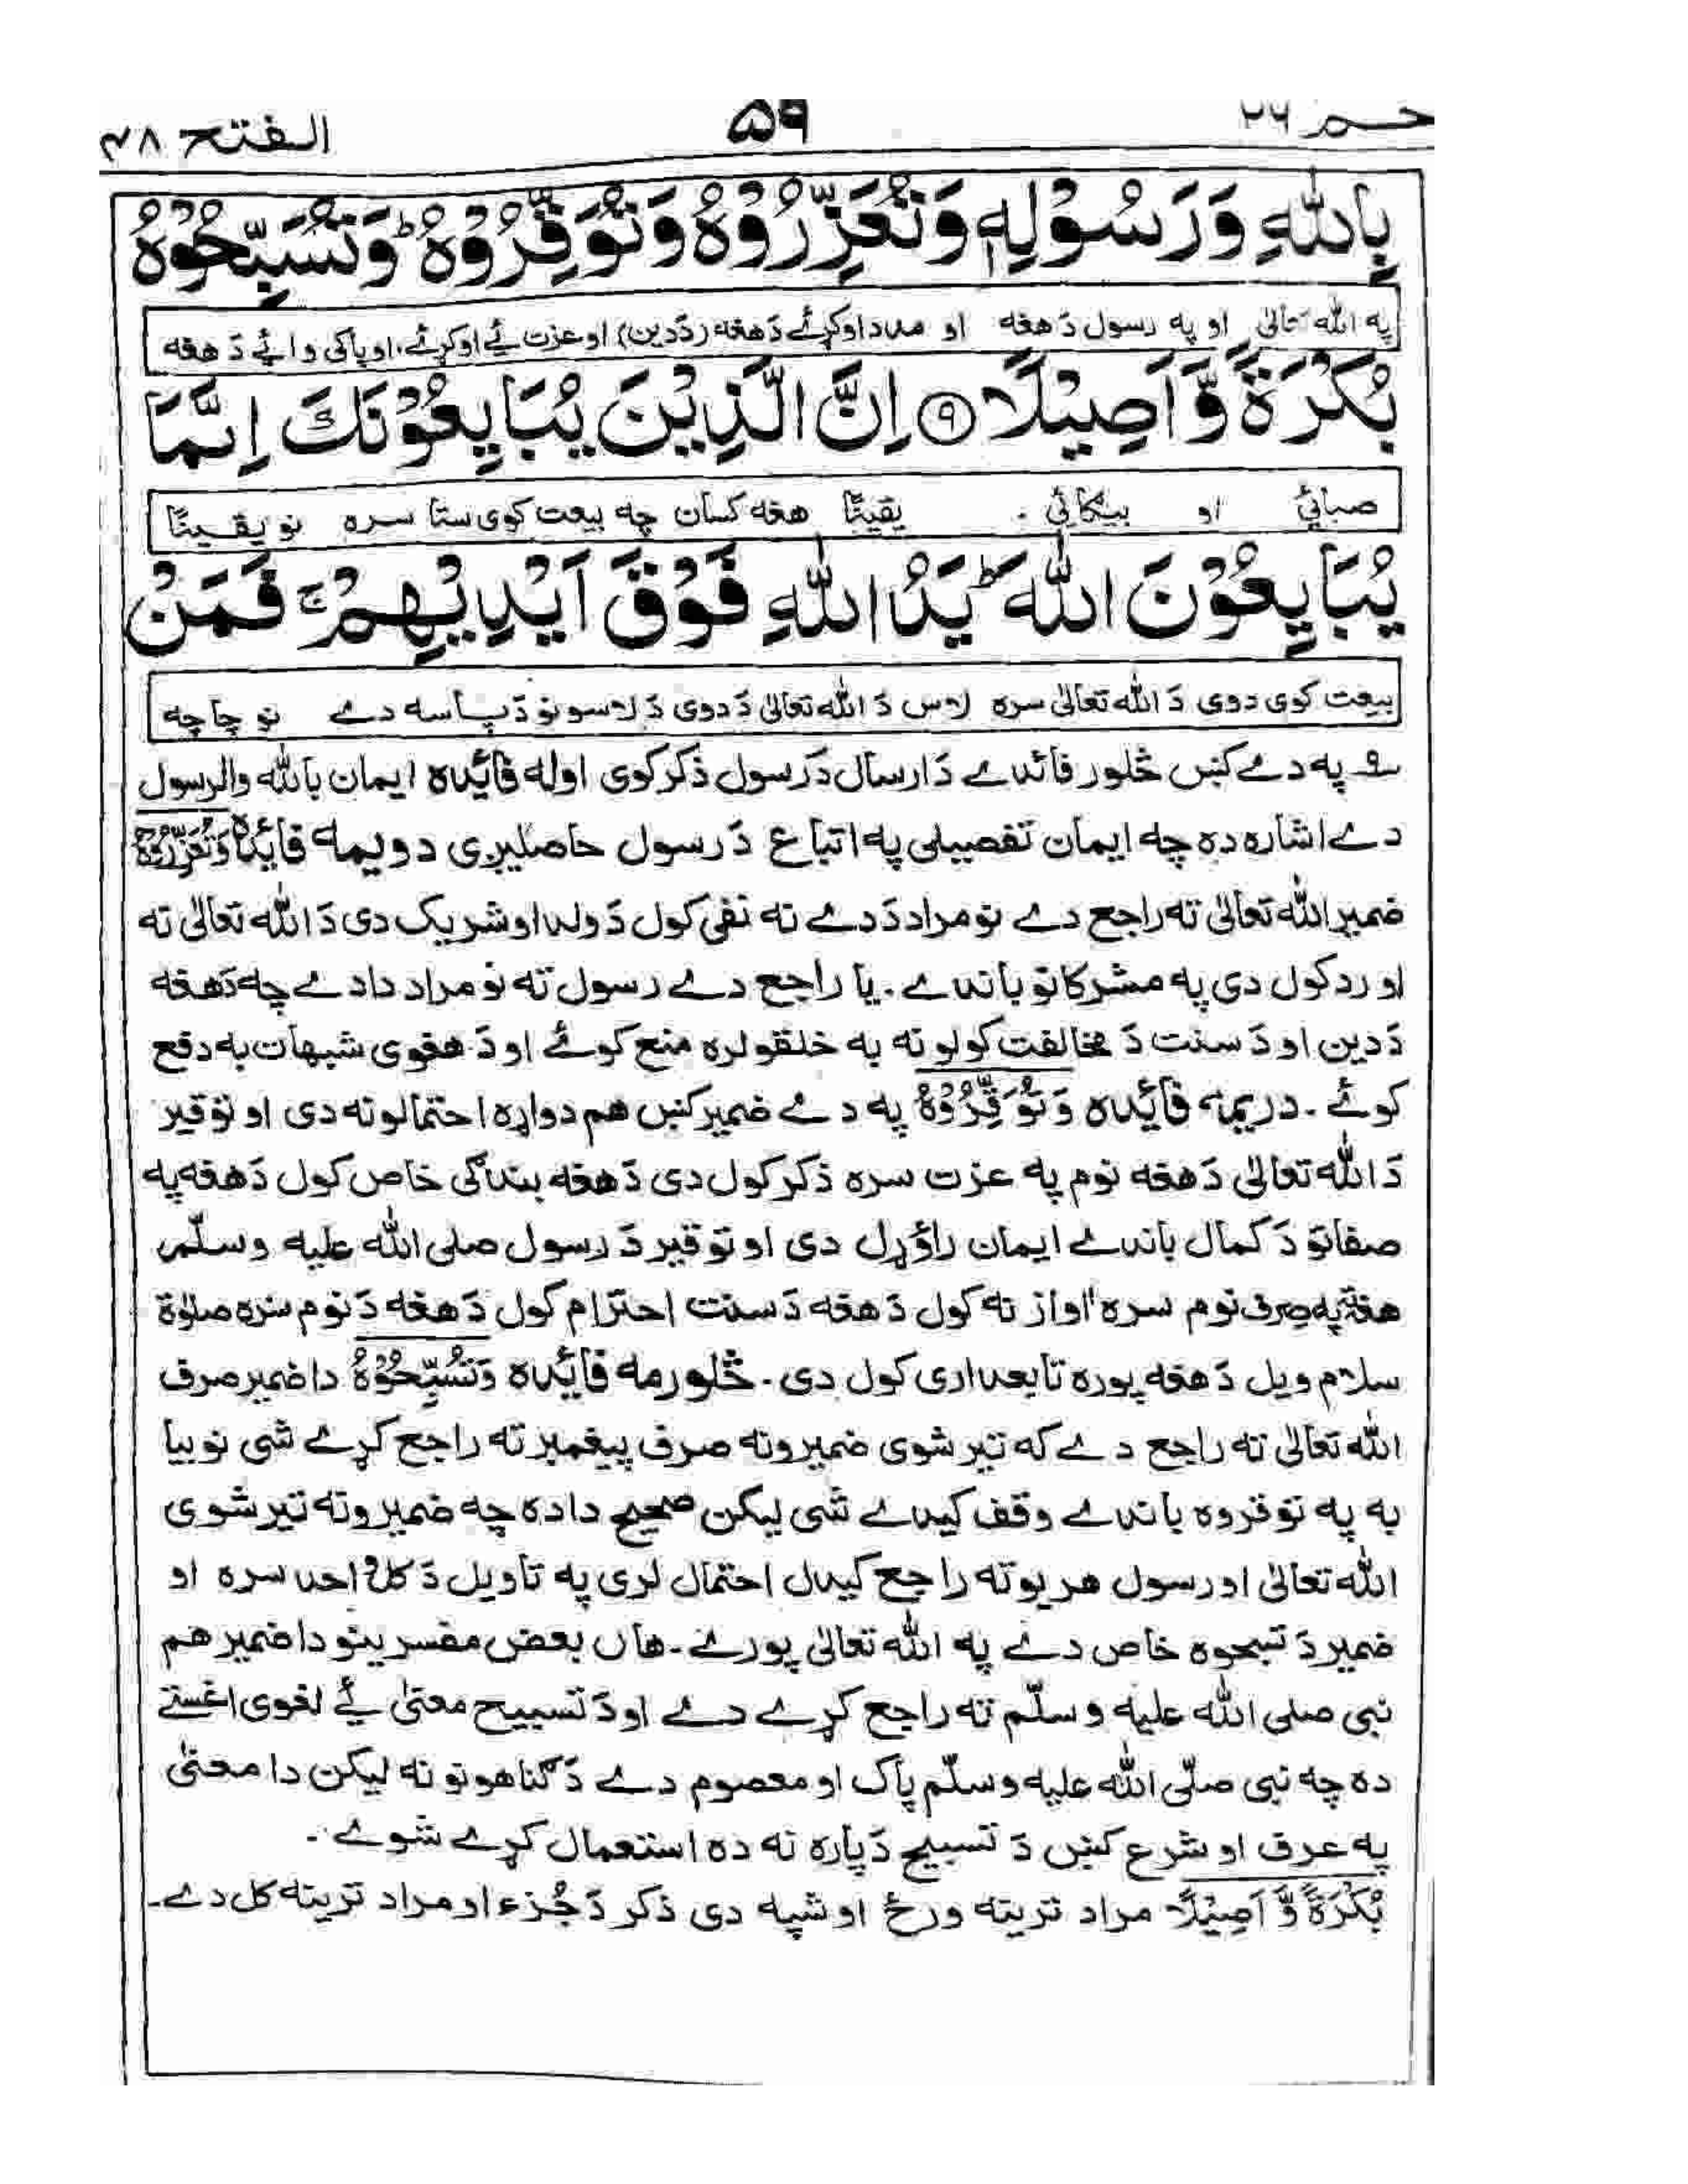 حٰم ۲۶
۵۹
الفتح ۴۸
بِاللّٰهِ وَرَسُوْلِهٖ وَتُعَزِّرُوْهُ وَتُوَقِّرُوْهُ ؕ وَتُسَبِّحُوْهُ
په الله تعالیٰ او په رسول دَ هغه او مدد اوکړئے دَ هغه (دَ دین) او عزت ئے اوکړئے، او پاکی وائے دَ هغه
بُكْرَةً وَّاَصِيْلًا ۹ اِنَّ الَّذِيْنَ يُبَايِعُوْنَكَ اِنَّمَا
صبائي او بیګائي . یقینًا هغه کسان چه بیعت کوی ستا سره نو یقینًا
يُبَايِعُوْنَ اللّٰهَ ؕ يَدُ اللّٰهِ فَوْقَ اَيْدِيْهِمْ ۚ فَمَنْ
بیعت کوی دوی دَ الله تعالیٰ سره لاس دَ الله تعالیٰ دَ دوی دَ لاسونو دَ پاسه دے نو چا چه
۹ په دے کښ څلور فائدے دَ ارسال دَ رسول ذکر کوی اوله فائده ایمان بالله والرسول
دے اشاره ده چه ایمان تفصیلی په اتباع دَ رسول حاصلیږی دویمه فائده وَتُعَزِّرُوْهُ
ضمیر الله تعالیٰ ته راجع دے نو مراد دَ دے نه نفی کول دَ ولد او شریک دی دَ الله تعالیٰ ته
او رد کول دی په مشرکانو باندے . یا راجع دے رسول ته نو مراد دا دے چه دَ هغه
دَ دین او دَ سنت دَ مخالفت کولو نه به خلقو لره منع کوئے او دَ هغوی شبهات به دفع
کوئے . دریمه فائده وَتُوَقِّرُوْهُ په دے ضمیر کښ هم دواړه احتمالونه دی او توقیر
دَ الله تعالیٰ دَ هغه نوم په عزت سره ذکر کول دی دَ هغه بندګی خاص کول دَ هغه په
صفاتو دَ کمال باندے ایمان راؤړل دی او توقیر دَ رسول صلی الله علیه وسلّم
هغه ته په صرف نوم سره اواز نه کول دَ هغه دَ سنت احترام کول دَ هغه دَ نوم سره صلوٰة
سلام ویل دَ هغه پوره تابعداری کول دی . څلورمه فائده وَتُسَبِّحُوْهُ دا ضمیر صرف
الله تعالیٰ ته راجع دے که تیر شوی ضمیرونه صرف پیغمبر ته راجع کړے شی نو بیا
به په توقروه باندے وقف کیدے شی لیکن صحیح دا ده چه ضمیرونه تیر شوی
الله تعالیٰ او رسول هر یو ته راجع کیدل احتمال لری په تاویل دَ کلُ احد سره او
ضمیر دَ تسبحوه خاص دے په الله تعالیٰ پورے . هاں بعض مفسرینو دا ضمیر هم
نبی صلی الله علیه وسلّم ته راجع کړے دے او دَ تسبیح معنیٰ ئے لغوی اغستے
ده چه نبی صلّی الله علیه وسلّم پاک او معصوم دے دَ ګناهونو نه لیکن دا معنیٰ
په عرف او شرع کښ دَ تسبیح دَ پاره نه ده استعمال کړے شوے .
بُكْرَةً وَّاَصِيْلًا مراد ترینه ورځ او شپه دی ذکر دَ جُزء او مراد ترینه کل دے .